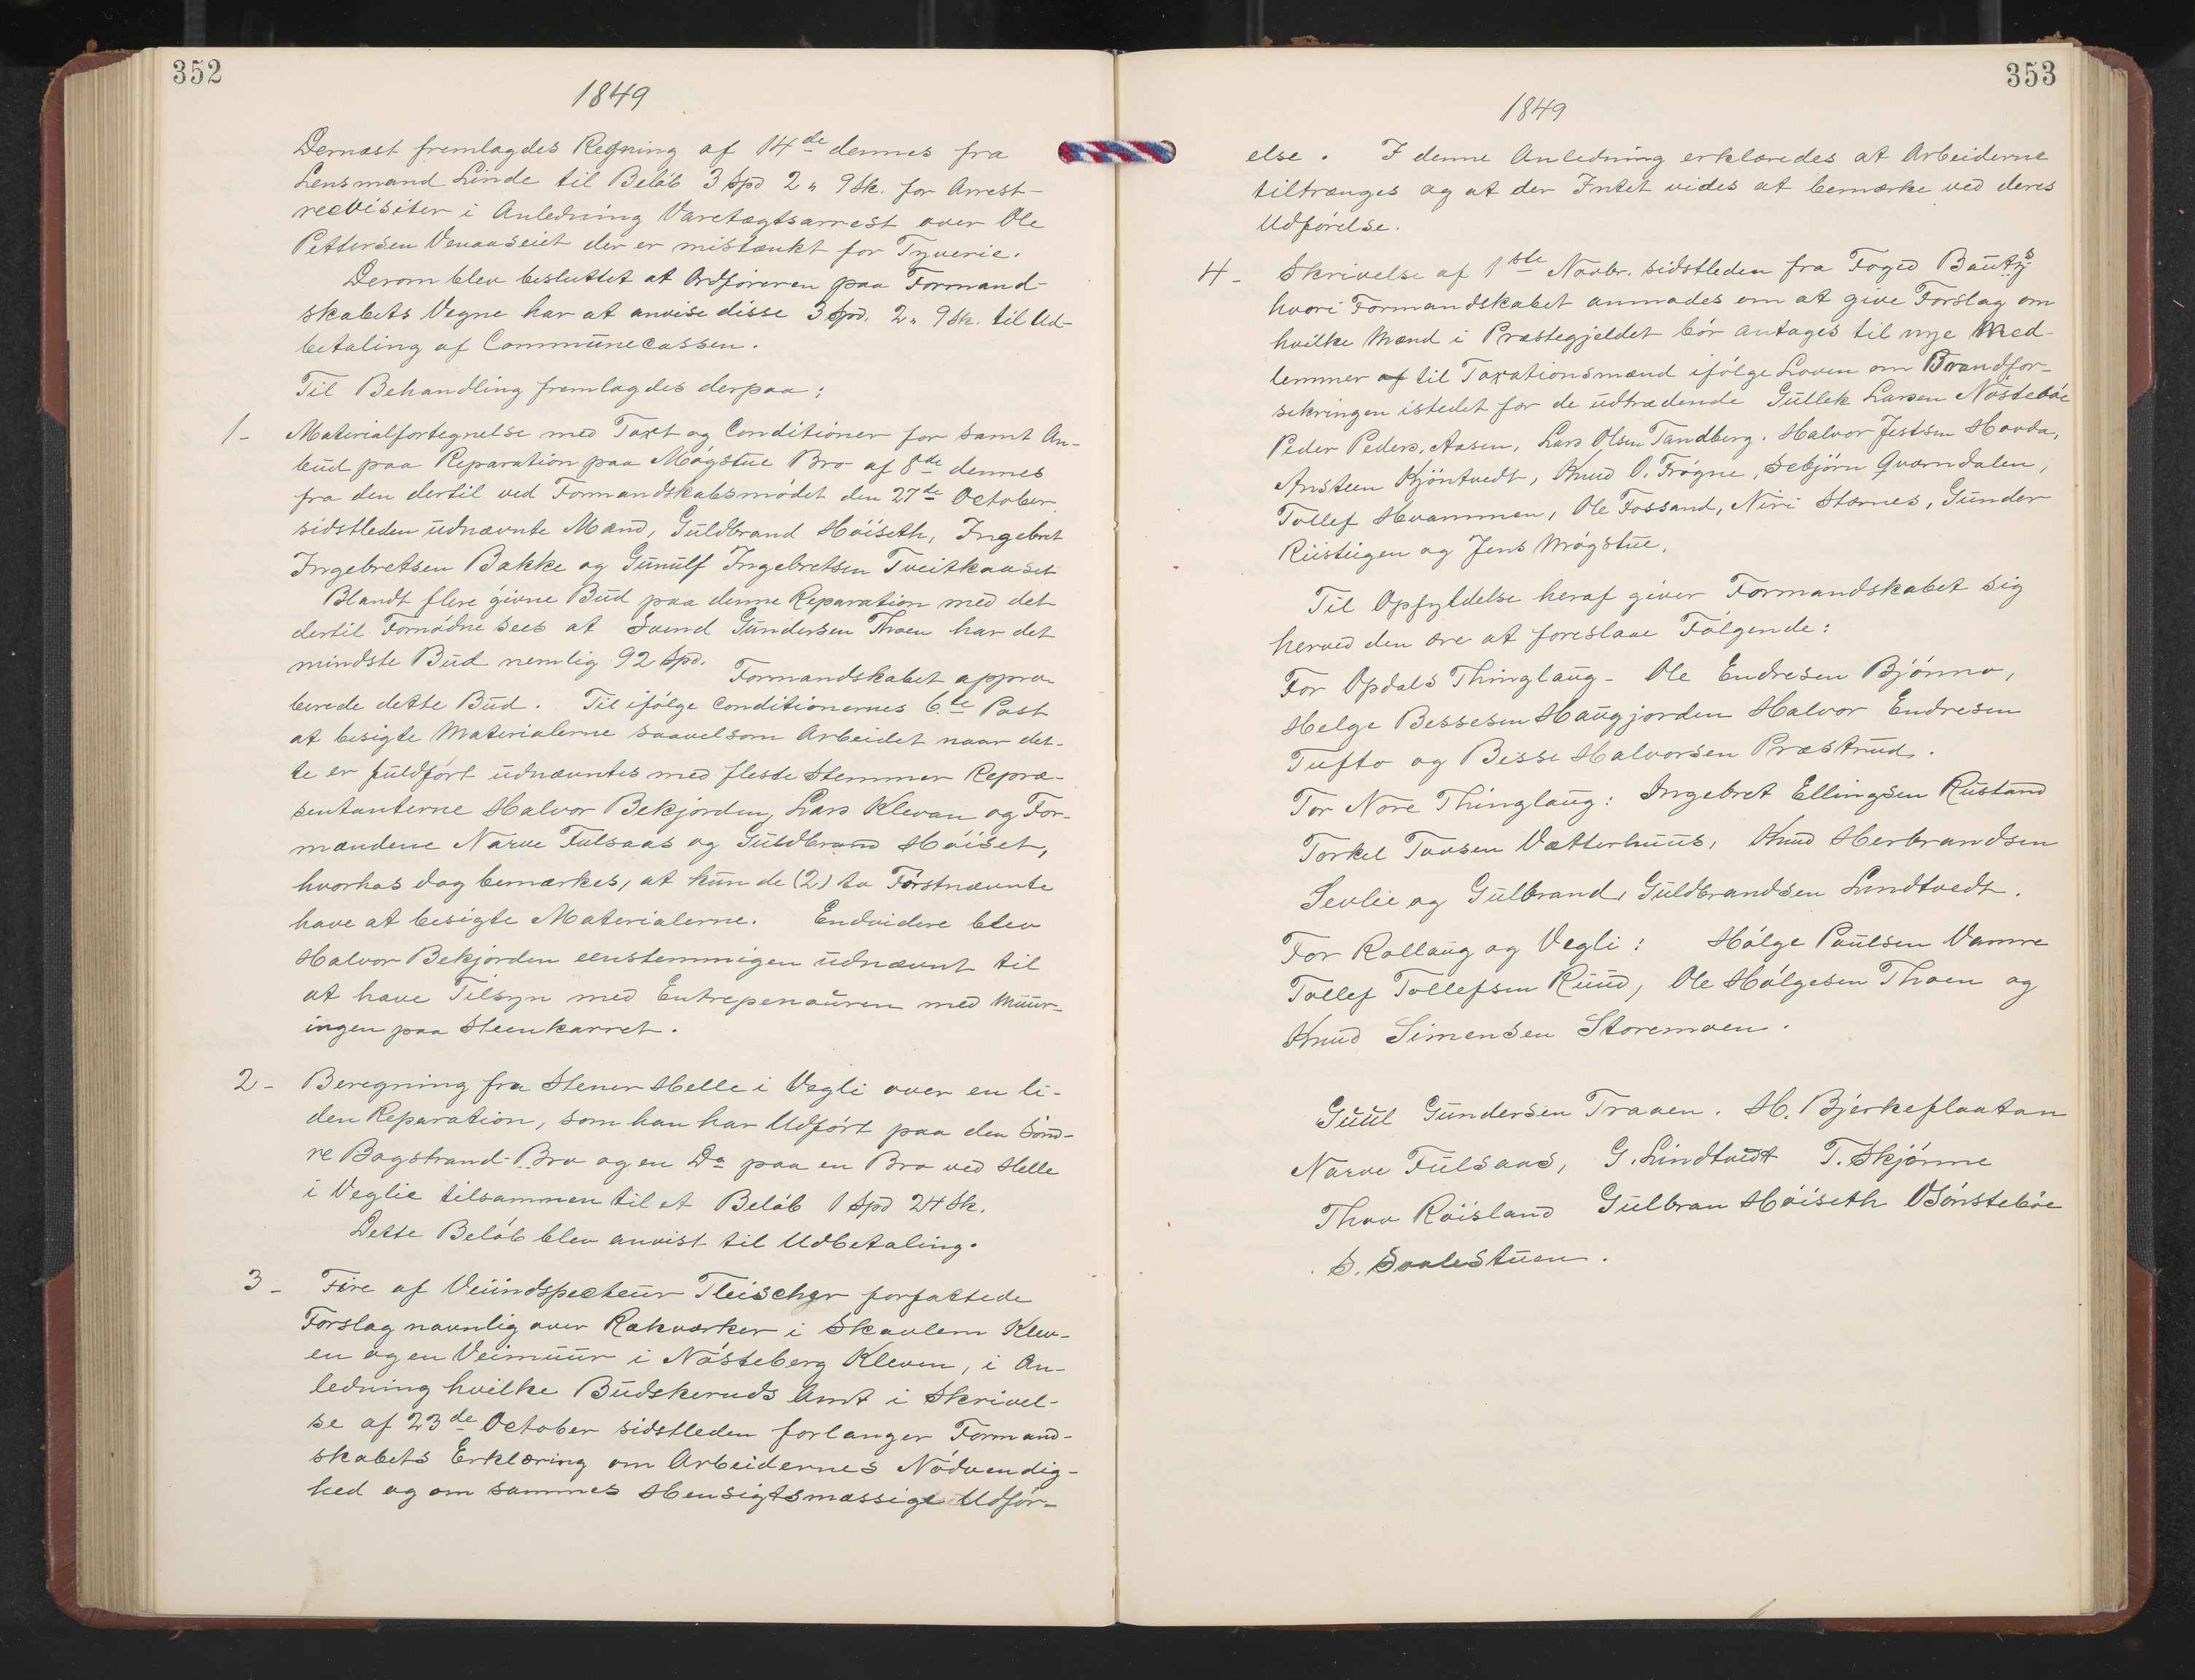 352
1849
Dernæst fremlagdes Regning af 14de dennes fra
Lensmand Linde til Beløb 3 Spd 2 " 9 Sk. for Arrest-
recvisiter i Anledning Varetægtsarrest over Ole
Pettersen Venaaseiet der er mistænkt for Tyverie.
Derom blev besluttet at Ordføreren paa Formand-
skabets Vegne har at anvise disse 3 Spd. 2 " 9 Sk. til Ud-
betaling af Communecassen.
Til Behandling fremlagdes derpaa:
1- Materialfortegnelse med Taxt og Conditioner for samt An-
bud paa Reparation paa Møgstue Bro af 8de dennes
fra den dertil ved Formandskabsmødet den 27de October
sidstleden udnævnte Mænd, Guldbrand Høiseth, Ingebret
Ingebretsen Bakke og Gunulf Ingebretsen Tveitkaaset
Blandt flere givne Bud paa denne Reparation med det
dertil Fornødne sees at Svend Gundersen Thoen har det
mindste Bud nemlig 92 Spd. Formandskabet appro-
berede dette Bud. Til ifølge Conditionernes 6te Post
at besigte Materialerne saavelsom Arbeidet naar det-
te er fuldført udnævntes med fleste Stemmer Repræ-
sentanterne Halvor Bekjorden, Lars Klevan og For-
mændene Narve Fulsaas og Guldbrand Høiset,
hvorhos dog bemærkes, at kun de (2) to Førstnævnte
have at besigte Materialerne. Endvidere blev
Halvor Bekjorden eenstemmigen udnævnt til
at have Tilsyn med Entrepenøuren med Muur-
ingen paa Steenkarret.
2- Beregning fra Stener Helle i Vegli over en li-
den Reparation, som han har Udført paa den Sønd-
re Bagstrand-Bro og en Do paa en Bro ved Helle
i Veglie tilsammen til et Beløb 1 Spd 24 Sk.
Dette Beløb blev anvist til Udbetaling.
3- Fire af Veiindspecteur Fleischer forfattede
Forslag navnlig over Rækværker i Skavlem Klev-
en og en Veimuur i Nøsteberg Kleven, i An-
ledning hvilke Budskeruds Amt i Skrivel-
se af 23de October sidstleden forlanger Formand-
skabets Erklæring om Arbeidernes Nødvendig-
hed og om sammes Hensigtsmæssige Udfør-
353
1849
else. I denne Anledning erklæredes at Arbeiderne
tiltrænges og at der Intet vides at bemærke ved deres
Udførelse.
4- Skrivelse af 1ste Novbr. sidstleden fra Foged Bautz
hvori Formandskabet anmodes om at give Forslag om
hvilke Mænd i Præstegjeldet bør antages til nye Med-
lemmer af til Taxationsmænd ifølge Loven om Brandfor-
sikringen istedet for de udtrædende Gullek Larsen Nøstebøe
Peder Peders. Aasen, Lars Olsen Tandberg. Halvor Jestsen Hovda,
Ansteen Kjøntvedt, Knud O. Frøgne, Sebjørn Qværndalen,
Tollef Hvammen, Ole Fossand, Niri Stærnes, Gunder
Rustugen og Jens Møgstue.
Til Opfyldelse heraf giver Formandskabet sig
herved den ære at foreslaae Følgende:
For Opdals Thinglaug- Ole Endresen Bjønno,
Helge Bessesen Haugjorden Halvor Endresen
Tufto og Besse Halvorsen Præstrud.
For Nore Thinglaug: Ingebret Ellingsen Rustand
Torkel Tovsen Vætterhuus, Knud Herbrandsen
Sevlie og Gulbrand Guldbrandsen Lundtvedt.
For Rollaug og Vegli: Hølge Paulsen Vamre
Tollef Tollefsen Ruud, Ole Hølgesen Thoen og
Knud Simensen Storemoen.
Guul Gundersen Traaen. H. Bjerkeflaatan
Narve Fulsaas, G. Lindtvedt T. Skjønne
Thov Røisland Gulbran Høiseth O Bønstebøe
S. Saalestuen.